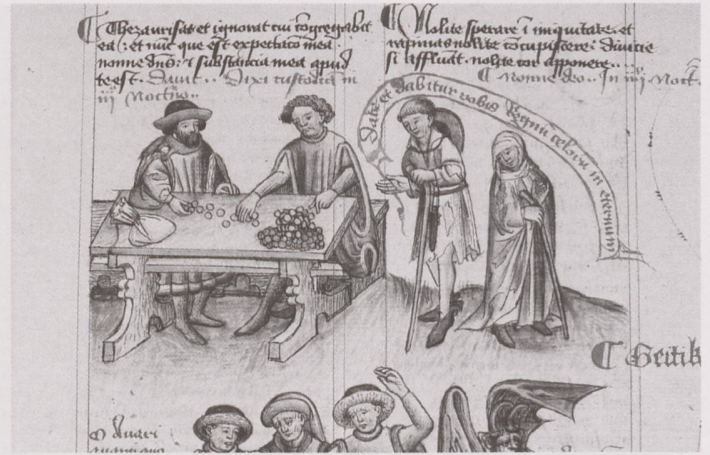 Thezaurisat et ignorat cui cōgregabit
ea : et nūc que est expectacio mea
nonne dn̄s : ⁊ substancia mea apud
te est . Dauit . Dixi custodiā in
iij Noctno .
Nolite sperare ī iniquitate . et
rapinas nolite cōcupiscere : diuicie
si affluāt . nolite cor apponere .
Nonne deo . In iij Noct.
Date et dabitur vobis regnū celorū in eternum
Geitik
O Auari